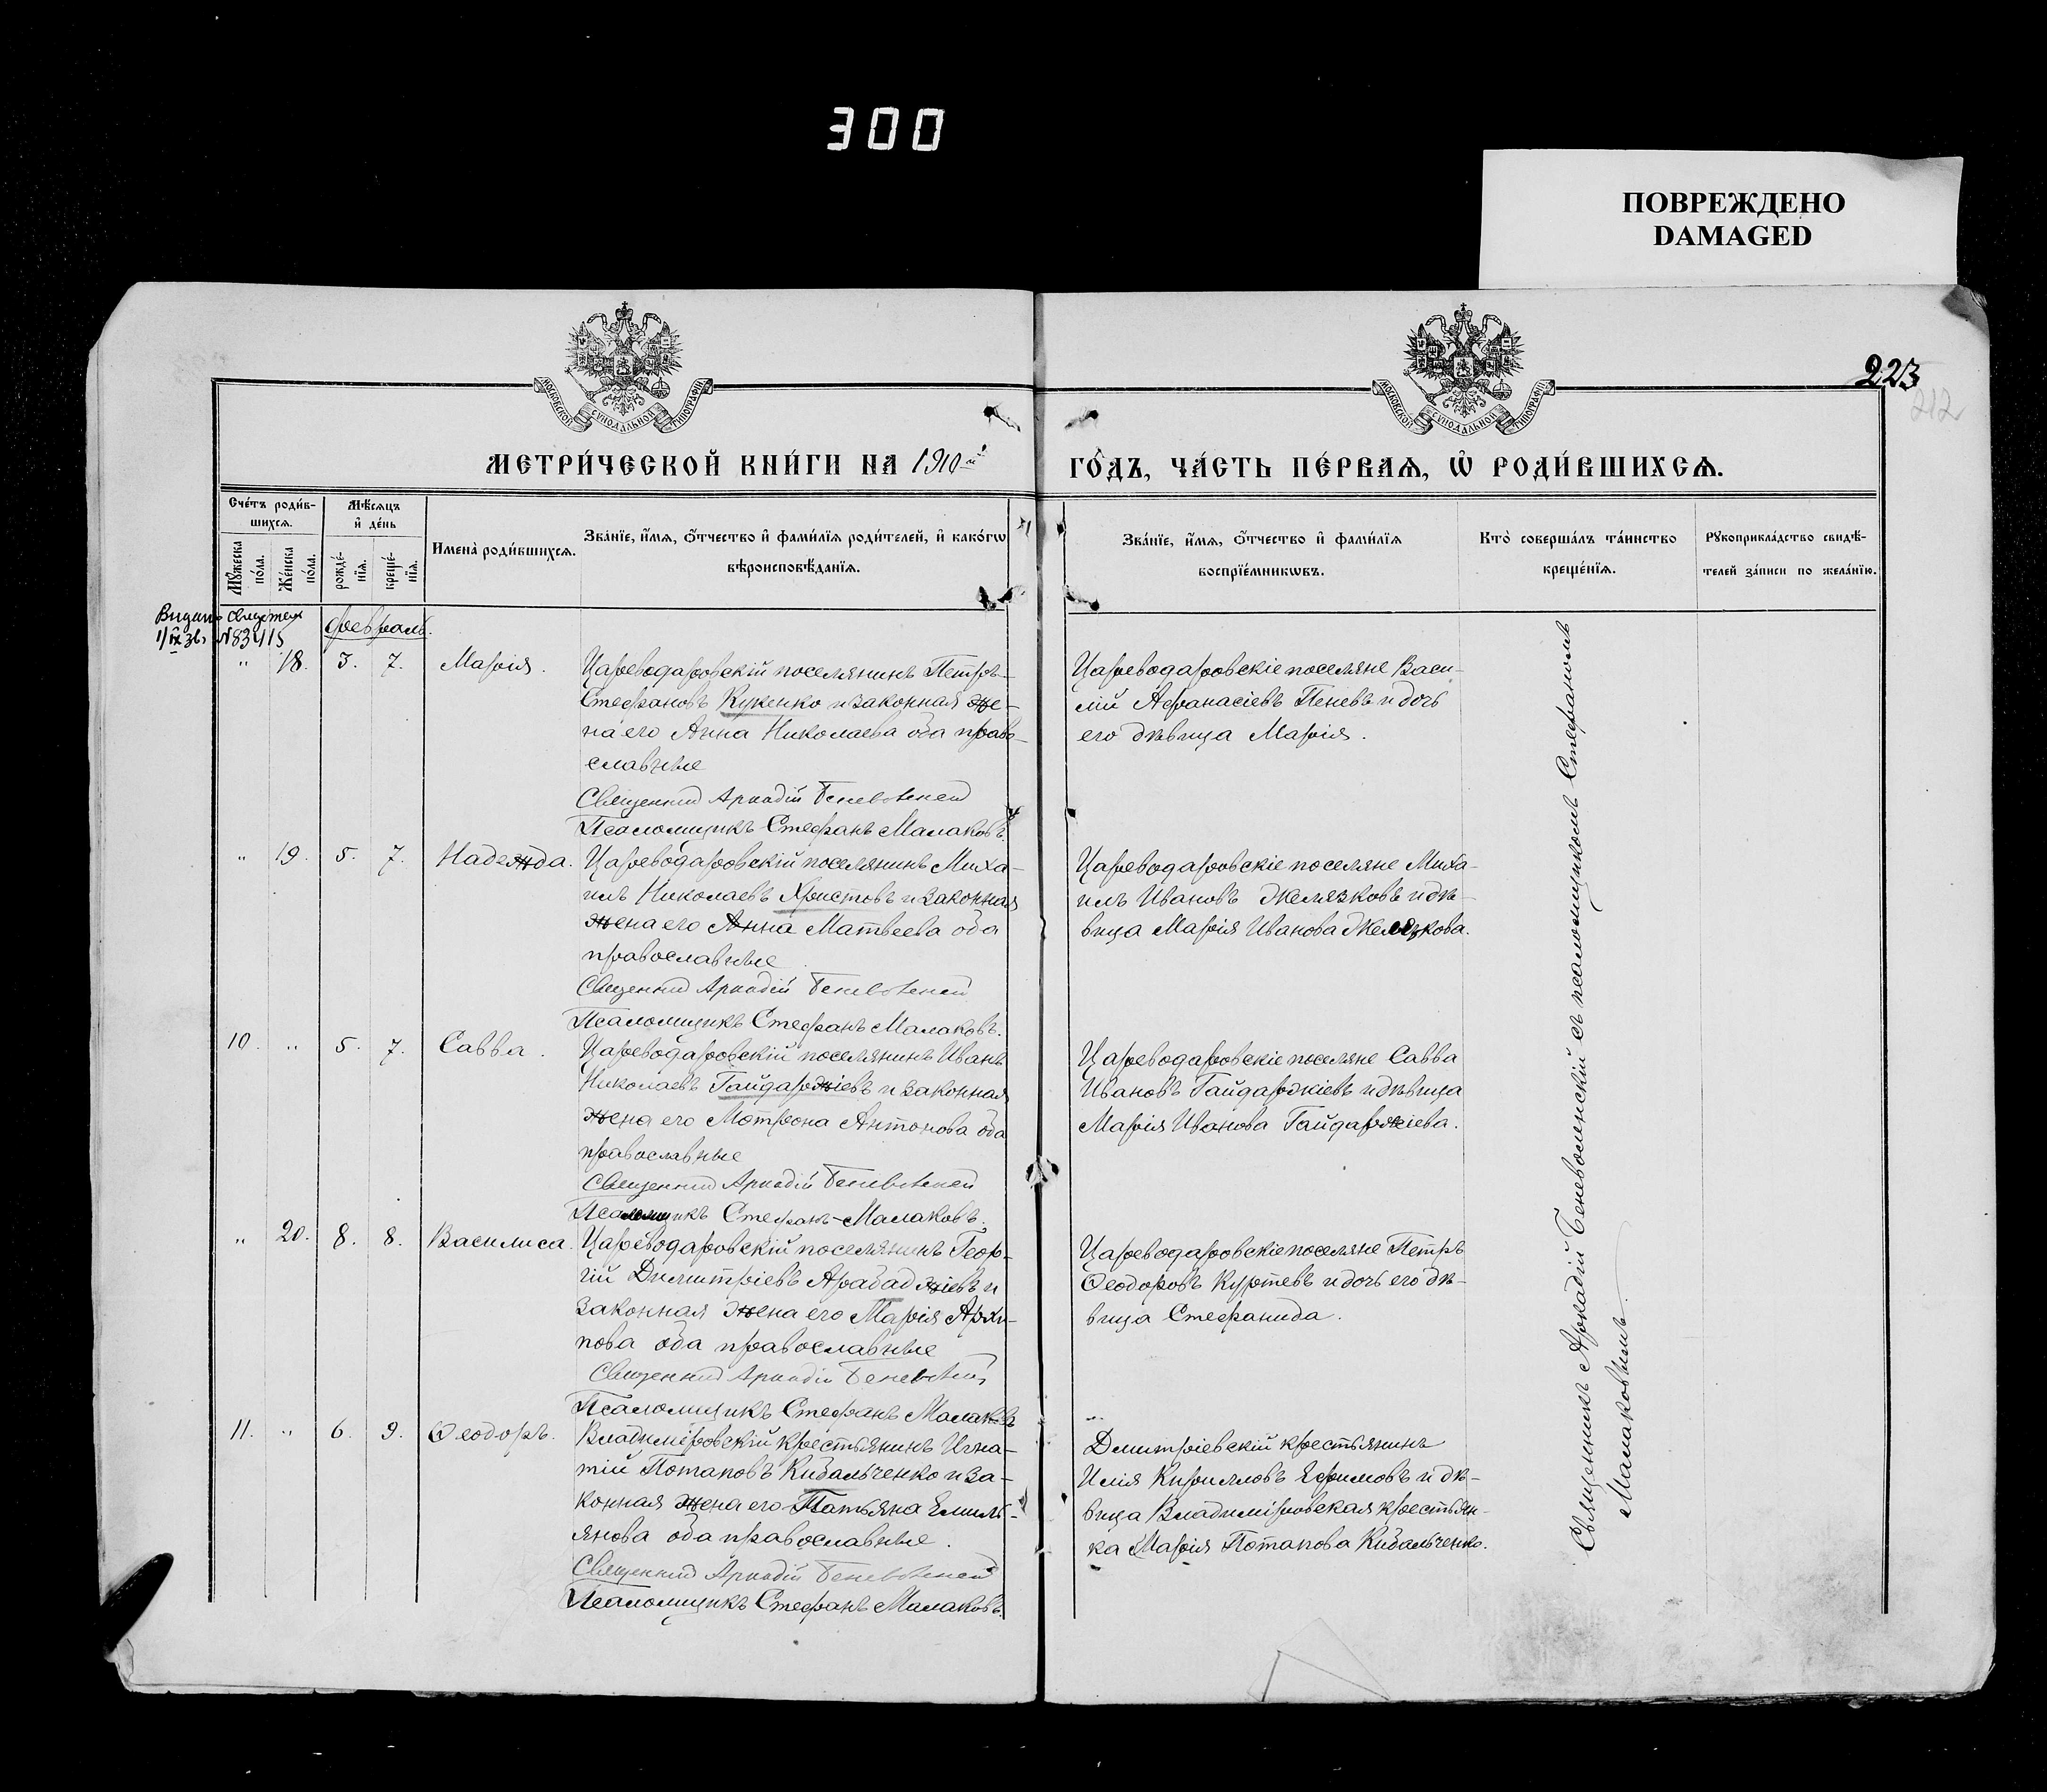 300
ПОВРЕЖДЕНО
DAMAGED
МОСКОВСКОЙ СѴНОДАЛЬНОЙ ТИПОГРАФІИ
МОСКОВСКОЙ СѴНОДАЛЬНОЙ ТИПОГРАФІИ
223
212
МЕТРИ́ЧЕСКОЙ КНИ́ГИ НА 1910-й
ГО́ДЪ, ЧА́СТЬ ПЕ́РВАѦ, Ѿ РОДИ́ВШИХСѦ.
Сче́тъ роди́вшихсѧ.
Мꙋ́жеска по́ла.
Же́нска по́ла.
Мѣ́сѧцъ и҆ де́нь
рожде́нїѧ.
креще́нїѧ.
И҆мена̀ роди́вшихсѧ.
Зва́нїе, и҆́мѧ, ѻ҆́тчество и҆ фами́лїѧ роди́телей, и҆ како́гѡ
вѣроисповѣ́данїѧ.
Зва́нїе, и҆́мѧ, ѻ҆́тчество и҆ фами́лїѧ
воспрїе́мникѡвъ.
Кто̀ соверша́лъ та́инство
креще́нїѧ.
Рꙋкоприкла́дство свидѣ́-
телей за́писи по жела́нїю.
Февраль.
" 18. 3. 7. Марія.
Цареводаровскій поселянинъ Петръ
Стефановъ Кукенко и законная же-
на его Анна Николаева оба право-
славные
Священник Аркадій Беневоленскій
Псаломщикъ Стефанъ Малаковъ.
Цареводаровскіе поселяне Васи-
лій Афанасіевъ Пеневъ и дочь
его дѣвица Марія.
" 19. 5. 7. Надежда.
Цареводаровскій поселянинъ Миха-
илъ Николаевъ Христовъ и законная
жена его Анна Матвеева оба
православные
Священник Аркадій Беневоленскій
Псаломщикъ Стефанъ Малаковъ.
Цареводаровскіе поселяне Миха-
илъ Ивановъ Желязковъ и дѣ-
вица Марія Иванова Желязкова.
10. " 5. 7. Савва.
Цареводаровскій поселянинъ Иванъ
Николаевъ Гайдаржіевъ и законная
жена его Мотрона Антонова оба
православные
Священник Аркадій Беневоленскій
Псаломщикъ Стефанъ Малаковъ.
Цареводаровскіе поселяне Савва
Ивановъ Гайдаржіевъ и дѣвица
Марія Иванова Гайдаржіева.
" 20. 8. 8. Василиса.
Цареводаровскій поселянинъ Геор-
гій Димитріевъ Арабаджіевъ и
законная жена его Марія Архи-
пова оба православные
Священник Аркадій Беневоленскій
Псаломщикъ Стефанъ Малаковъ
Цареводаровскіе поселяне Петръ
Ѳеодоровъ Куртевъ и дочь его дѣ-
вица Стефанида.
11. " 6. 9. Ѳеодоръ.
Владиміровскій крестьянинъ Игна-
тій Потаповъ Кибальченко и за-
конная жена его Татьяна Емиль-
янова оба православные.
Священник Аркадій Беневоленскій
Псаломщикъ Стефанъ Малаковъ.
Дмитріевскій крестьянинъ
Илія Кирилловъ Ефимовъ и дѣ-
вица Владиміровская крестьян-
ка Марія Потапова Кибальченко.
Священникъ Аркадій Беневоленскій съ псаломщикомъ Стефаномъ
Малаковымъ.